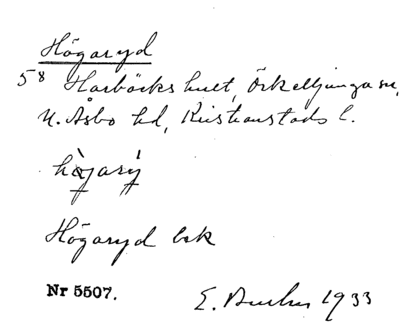 Högaryd
5⁸ Harböckshult, Örkelljunga sn,
N. Åsbo hd, Kristianstads l.
Högaryd bsk
Nr 5507.
E. 1933